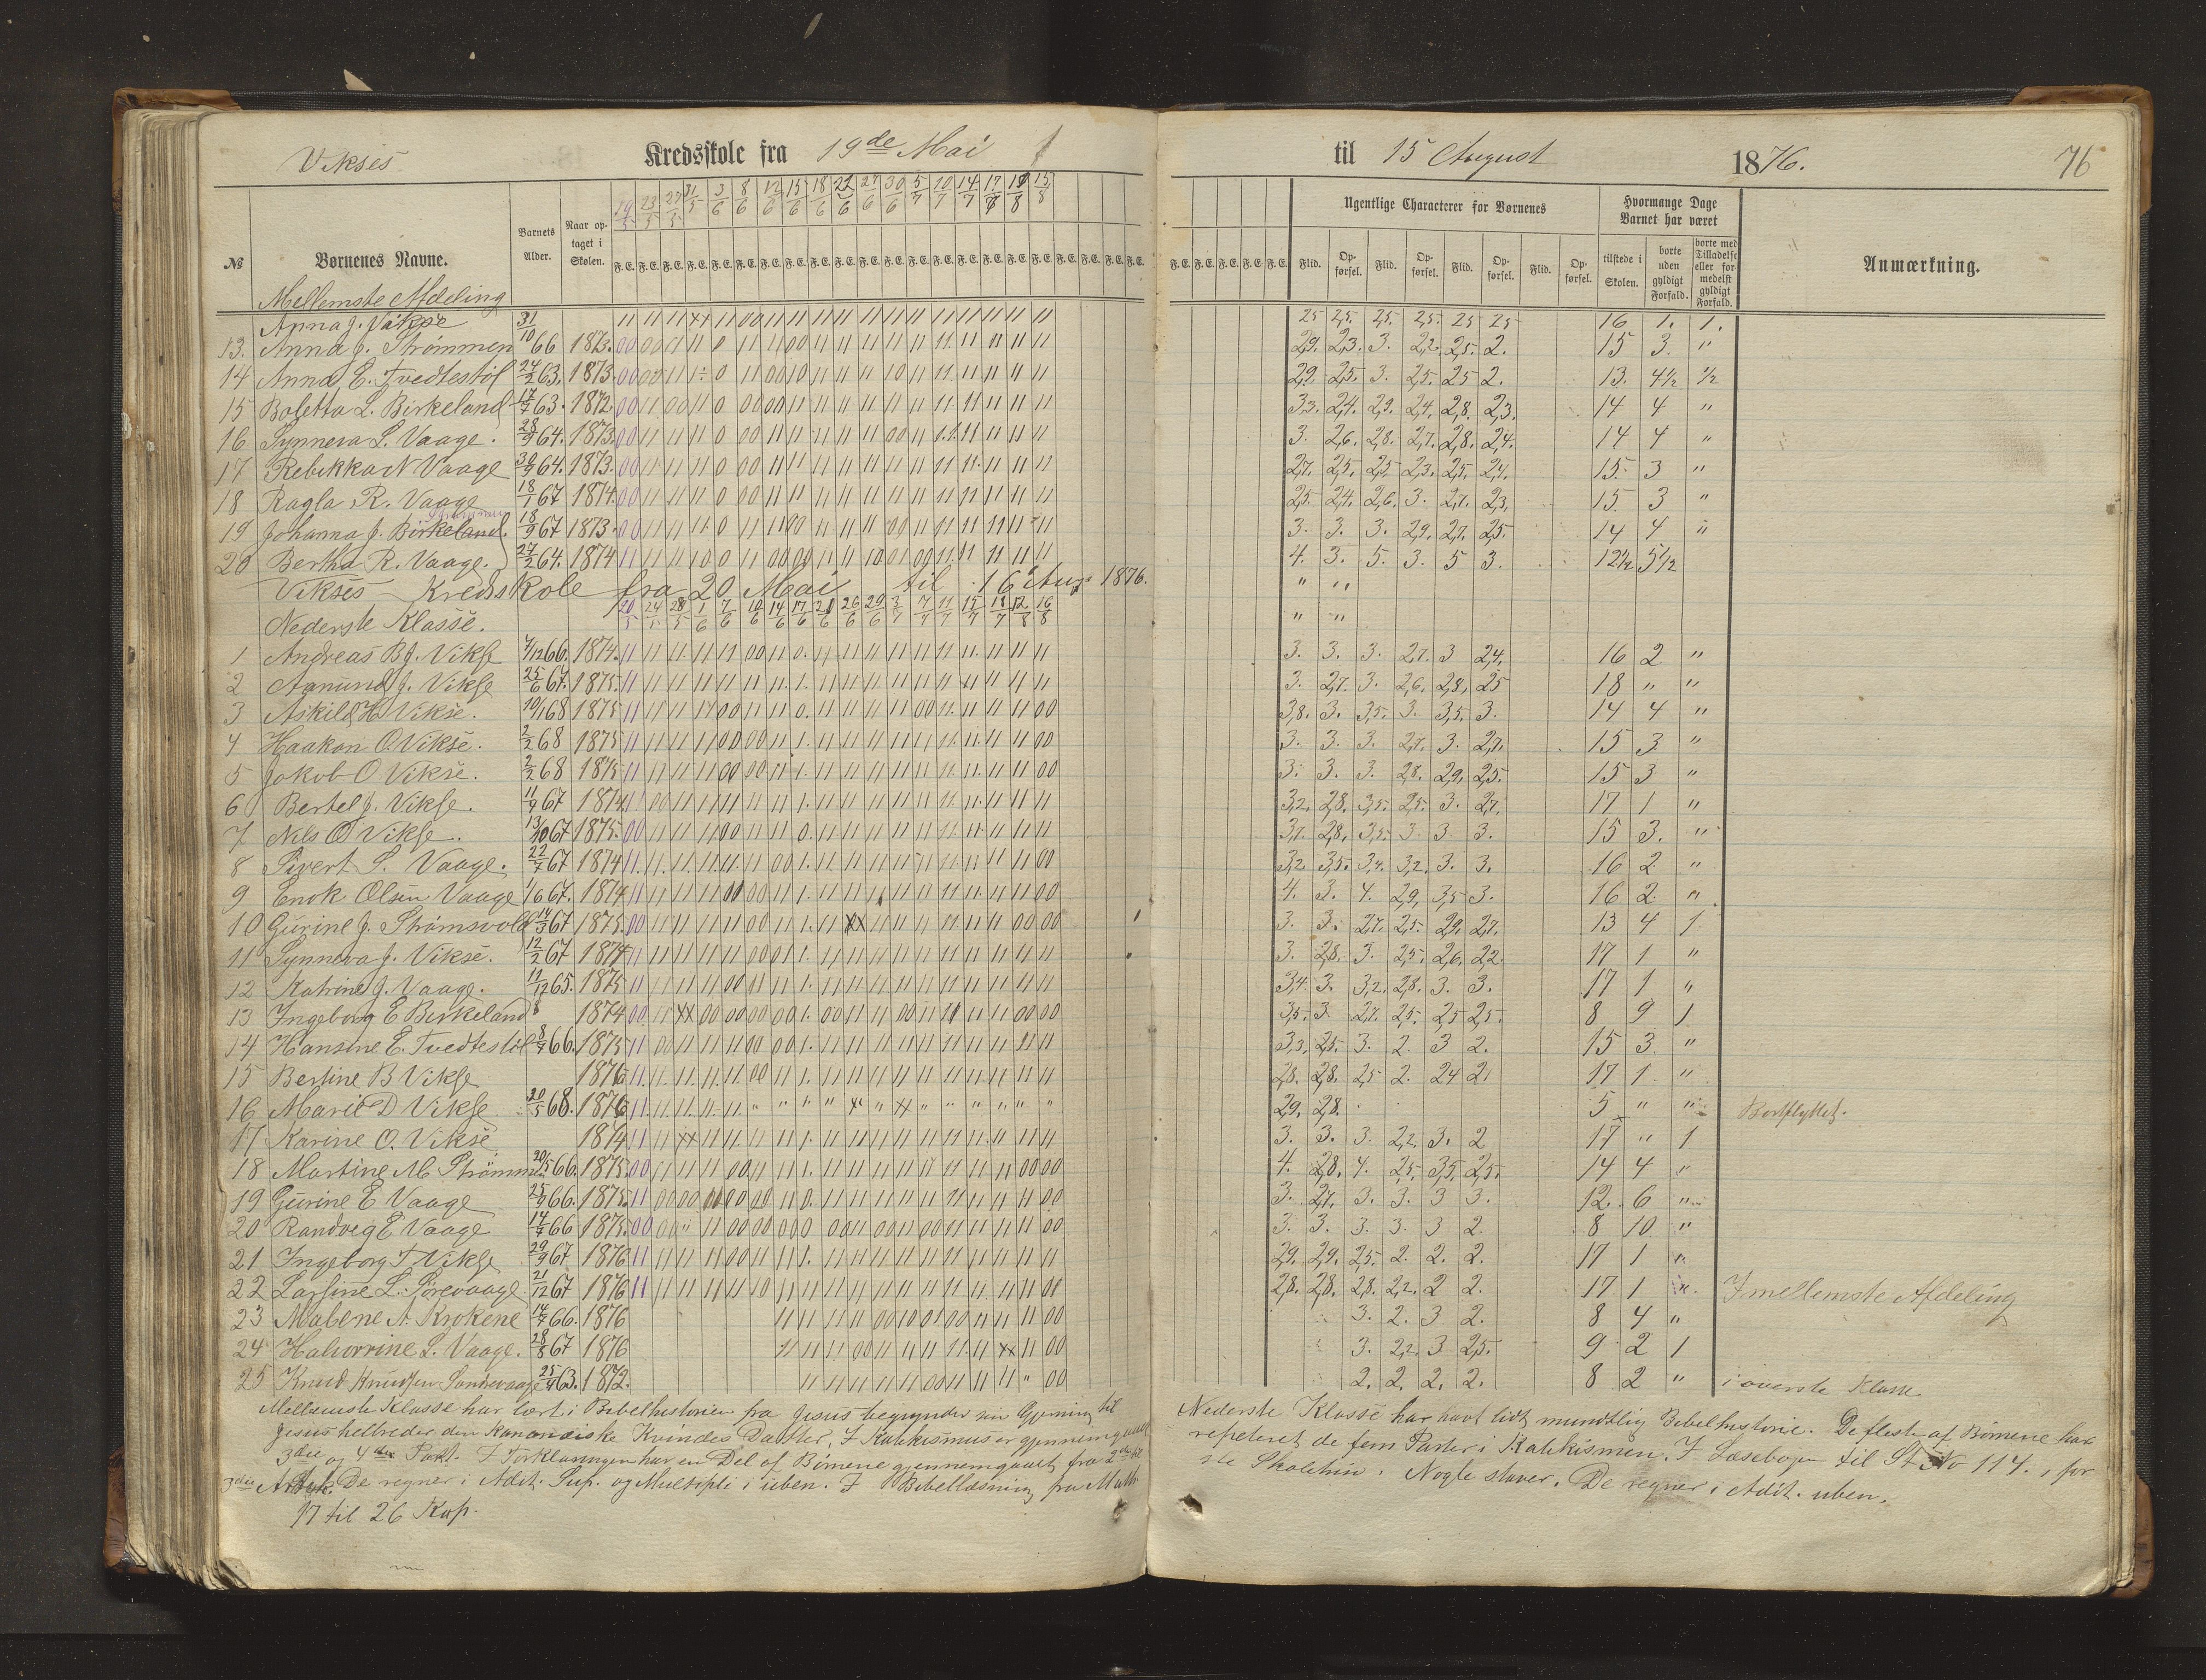 Vikses Kredsskole fra 19de Mai til 15 August 1876. 76
№ Børnenes Navne. Barnets Alder. Naar optaget i Skolen. Ugentlige Characterer for Børnenes Hvormange Dage Barnet har været Anmærkning.
F.E. F.E. F.E. F.E. F.E. F.E. F.E. F.E. F.E. F.E. F.E. F.E. F.E. F.E. F.E. F.E. F.E. F.E. F.E. F.E. F.E. F.E. F.E. F.E. F.E. F.E. Flid. Opførsel. Flid. Opførsel. Flid. Opførsel. Flid. Opførsel. tilstede i Skolen. borte uden gyldigt Forfald. borte med Tilladelse eller formedelst gyldigt Forfald.
19/5 23/5 27/5 31/5 3/6 8/6 12/6 15/6 18/6 22/6 27/6 30/6 5/7 10/7 14/7 17/7 15/8
Mellemste Afdeling
Anna J. Vikse 25 2,5. 2,5. 2,5. 25 25 16 1. 1.
13. Anna J. Strømmen 31/10 66 1873. 2,9. 2,3. 3. 2,2. 2,5. 2. 15 3. "
14 Anna E. Tvedtestøl 24/2 63. 1873. 2,9. 2,5. 3. 2,5. 25 2. 13. 4½ ½
15 Boletta L. Birkeland 17/7 63. 1872. 3,3. 2,4. 2,9. 2,4. 2,8. 2,3. 14 4 "
16 Synneva S. Vaage. 28/9 64. 1873. 3. 2,6. 2,8. 2,7. 2,8. 2,4. 14 4 "
17 Rebikka N Vaage 30/9 64. 1873. 2,7. 2,5. 2,5 2,3. 2,5. 2,4. 15. 3 "
18 Ragla R. Vaage 18/1 67 1874. 2,5. 2,4. 2,6. 3. 2,7. 2,3. 15. 3 "
19 Johanna J. Birkeland. 18/9 67 1873. 3. 3. 3. 2,9. 2,7. 2,5. 14 4 "
20 Bertha R. Vaage. 27/2 64. 1874 4. 3. 5. 3. 5 3. 12½ 5½
Vikses Kredsskole fra 20 Mai til 16 Aug 1876.
Nederste Klasse. 20/5 24/5 28/5 1/6 7/6 10/6 14/6 17/6 26/6 3/7 7/7 11/7 15/7 18/7 12/8 16/8
1 Andreas B J. Vikse 7/12 66. 1874. 3. 3. 3. 2,7. 3 2,4. 16 2 "
2 Aamund J. Vikse 25/6 67. 1875. 3. 2,7. 3. 2,6. 2,8. 25 18 " "
3 Askild H Vikse. 19/1 68 1875 3,8. 3. 3,5. 3. 3,5. 3. 14 4 "
4 Haakon O. Vikse. 2/2 68 1875 3. 3. 3. 2,7. 3. 2,7. 15 3 "
5 Jakob O Vikse. 2/2 68 1875 3. 3. 3. 2,8. 2,9. 2,5. 15 3 "
6 Bertel J. Vikse. 11/9 67 1874 3,2. 2,8. 3,5. 2,5. 3. 2,7. 17 1 "
7 Nils O Vikse. 13/10 67 1875. 3,7. 2,8. 3,5. 3 3. 3. 15 3. "
8 Sivert S. Vaage. 22/7 67 1874 3,2. 3,5. 3,4. 3,2. 3. 3. 16 2 "
9 Enok Olsen Vaage 1/6 67. 1874 4. 3. 4. 2,9. 3,5 3. 16 2 "
10 Gurine J. Strømsvold 14/3 67 1875. 3. 3. 2,7. 2,5. 2,9. 2,7. 13 4 1
11 Synneva J. Vikse. 12/2 67 1874 3. 2,8. 3. 2,5. 2,6. 2,2. 17 1 "
12 Katrine J. Vaage. 11/12 65. 1875 3,4. 3. 3,2. 2,8. 3. 3. 17 1 "
13 Ingeborg E Birkeland 1874 3,5. 3. 2,7. 2,5. 25 2,5. 8 9 1
14 Hansine E. Tvedtestøl 8/7 66. 1875 3,3. 2,5. 3. 2. 3 2. 15 3 "
15 Bertine B Vikse 1876 2,8. 2,8. 2,5 2. 24 2. 17 1 "
16 Marie D Vikse 20/5 68. 1876 2,9. 2,8. 5 " " Bortflyttet.
17 Karine O. Vikse 1874 3. 3. 3. 2,2. 3. 2 17 " 1
18 Martine M Strømmen 20/5 66. 1875. 4. 2,8. 4. 2,5. 3,5. 2,5. 14 4 "
19 Gurine E Vaage 25/9 66. 1875. 3. 2,7. 3. 3. 3 3. 12. 6 "
20 Randveg E Vaage 14/7 66 1875. 3. 3. 3. 3. 3 2. 8 10 "
21 Ingeborg T Vikse 29/9 67 1876 2,9. 2,9. 2,5. 2. 2. 2. 17 1 "
22 Larsine L. Sørevaage 21/12 67 1876 2,8. 2,8. 2,8. 2,2. 2 2. 17 1 " I mellemste Afdeling
23 Malene A. Krokene 14/7 66. 1876 3. 2. 3 2. 8 4 "
24 Halvorrine L. Vaage. 28/8 67 1876 3. 2,2. 3 2,5. 9 2 1
25 Knud Knudsen Sandevaage 25/4 63. 1872. 2. 2. 2. 2. 8 2 " i øverste Klasse
Mellemste Klasse har lært i Bibelhistorien fra Jesus begynder sin Gjerning til
Jesus helbreder den Kananæiske Kvindes Datter, I Katekismus er gjennemgaaet
3die og 4de Part. I Forklaringen har en Del af Børnene gjennemgaaet fra 2den til
3die Artik. De regner i Adit. Sup. og Multipli i uben. I Bibellæsning fra Math.
17 til 26 Kap.
Nederste Klasse har havt lidt mundtlig Bibelhistorie. De fleste af Børnene har
repeteret de fem Parter i Katekismen. I Læsebogen til St No 114. i før
ste Skoletrin. Nogle staver. De regner i Adit. uben.